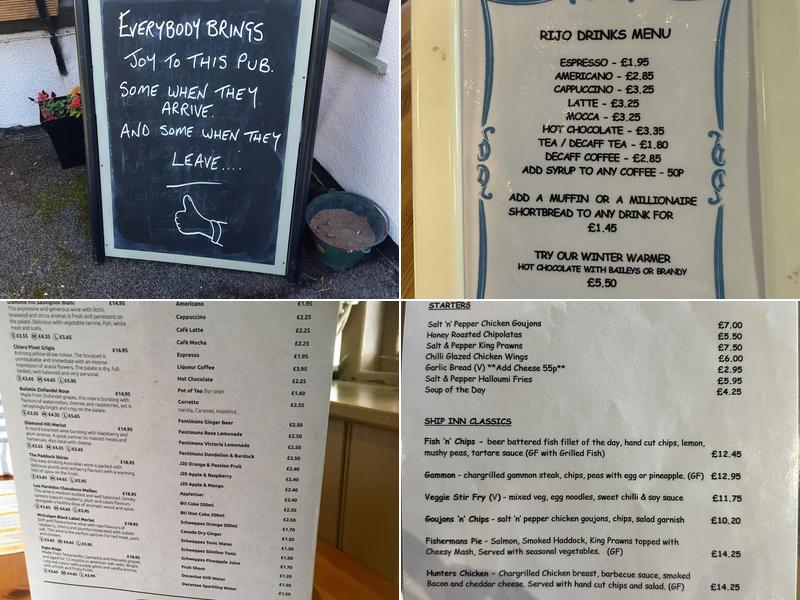 EVERYBODY BRINGS
JOY TO THIS PUB.
SOME WHEN THEY
ARRIVE.
AND SOME WHEN THEY
LEAVE....
RIJO DRINKS MENU
ESPRESSO - £1.95
AMERICANO - £2.85
CAPPUCCINO - £3.25
LATTE - £3.25
MOCCA - £3.25
HOT CHOCOLATE - £3.35
TEA / DECAFF TEA - £1.80
DECAFF COFFEE - £2.85
ADD SYRUP TO ANY COFFEE - 50P
ADD A MUFFIN OR A MILLIONAIRE
SHORTBREAD TO ANY DRINK FOR
£1.45
TRY OUR WINTER WARMER
HOT CHOCOLATE WITH BAILEYS OR BRANDY
£5.50
Diamond Hill Sauvignon Blanc £14.95
This expressive and generous wine with litchi,
boxwood and citrus aromas is fresh and persistent on
the palate. Delicious with vegetable terrine, fish, white
meat and sushi.
S £3.35 M £4.35 L £5.65
Chiaro Pinot Grigio £16.95
A strong yellow straw colour. The bouquet is
unmistakable and immediate with an intense
impression of acacia flowers. The palate is dry, full-
bodied, well balanced and very personal.
S £3.65 M £4.65 L £5.95
Bulletin Zinfandel Rose £14.95
Made from Zinfandel grapes, this rose is bursting with
flavours of watermelon, cherries and raspberries, yet is
refreshingly bright and crisp on the palate.
S £3.35 M £4.35 L £5.65
Diamond Hill Merlot £14.95
A round balanced wine bursting with blackberry and
plum aromas. A great partner to roasted meats and
barbecues. Also ideal with cheese.
S £3.35 M £4.35 L £5.65
The Paddock Shiraz £16.95
This easy drinking Australian wine is packed with
delicious plum and red berry flavours with a warming
hint of spice on the finish.
S £3.65 M £4.65 L £5.95
Los Haroldos Chacabuco Malbec £18.95
McGuigan Black Label Merlot £18.95
Siglo Rioja £18.95
Americano £1.95
Cappuccino £2.25
Café Latte £2.25
Café Mocha £2.25
Espresso £1.95
Liqueur Coffee £3.95
Hot Chocolate £2.25
Pot of Tea (for one) £1.60
Corretto £2.55
Vanilla, Caramel, Hazelnut
Fentimans Ginger Beer £2.50
Fentimans Rose Lemonade £2.50
Fentimans Victoria Lemonade £2.50
Fentimans Dandelion & Burdock £2.50
J20 Orange & Passion Fruit £2.40
J20 Apple & Raspberry £2.40
J20 Apple & Mango £2.40
Appletiser £2.40
Btl Coke 200ml £2.50
Btl Diet Coke 200ml £2.50
Schweppes Orange 200ml £1.70
Canada Dry Ginger £1.50
Schweppes Tonic Water £1.50
Schweppes Slimline Tonic £1.50
Schweppes Pineapple Juice £1.70
Fruit Shoot £1.20
Decantae Still Water £1.50
Decantae Sparkling Water £1.50
STARTERS
Salt 'n' Pepper Chicken Goujons £7.00
Honey Roasted Chipolatas £5.50
Salt & Pepper King Prawns £7.50
Chilli Glazed Chicken Wings £6.00
Garlic Bread (V) **Add Cheese 55p** £2.95
Salt & Pepper Halloumi Fries £5.95
Soup of the Day £4.25
SHIP INN CLASSICS
Fish 'n' Chips – beer battered fish fillet of the day, hand cut chips, lemon,
mushy peas, tartare sauce (GF with Grilled Fish) £12.45
Gammon - chargrilled gammon steak, chips, peas with egg or pineapple. (GF) £12.95
Veggie Stir Fry (V) - mixed veg, egg noodles, sweet chilli & soy sauce £11.75
Goujons 'n' Chips - salt 'n' pepper chicken goujons, chips, salad garnish £10.20
Fishermans Pie - Salmon, Smoked Haddock, King Prawns topped with
Cheesy Mash, Served with seasonal vegetables. (GF) £14.25
Hunters Chicken – Chargrilled Chicken breast, barbecue sauce, smoked
Bacon and cheddar cheese. Served with hand cut chips and salad. (GF) £14.25